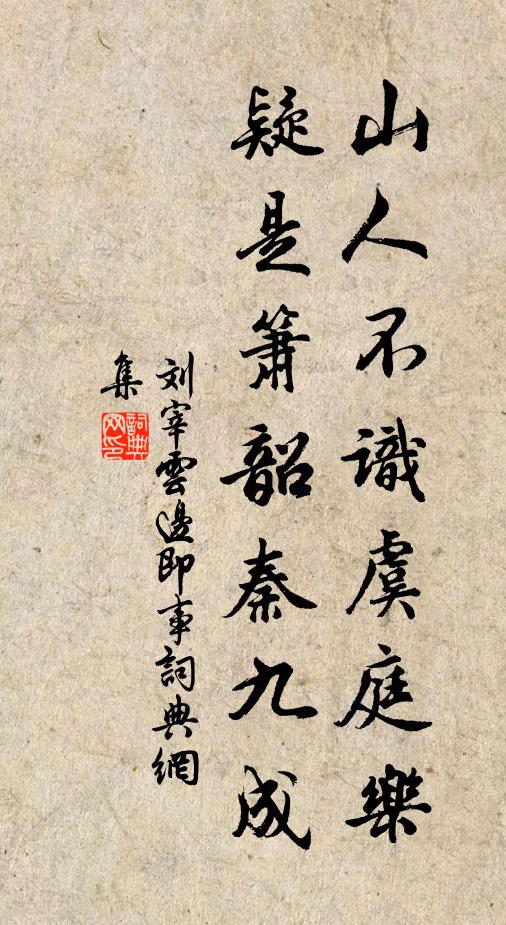 山人不識虞庭樂
疑是簫韶秦九成
刘宰雲邊即事詞典網
集
詞典
网印